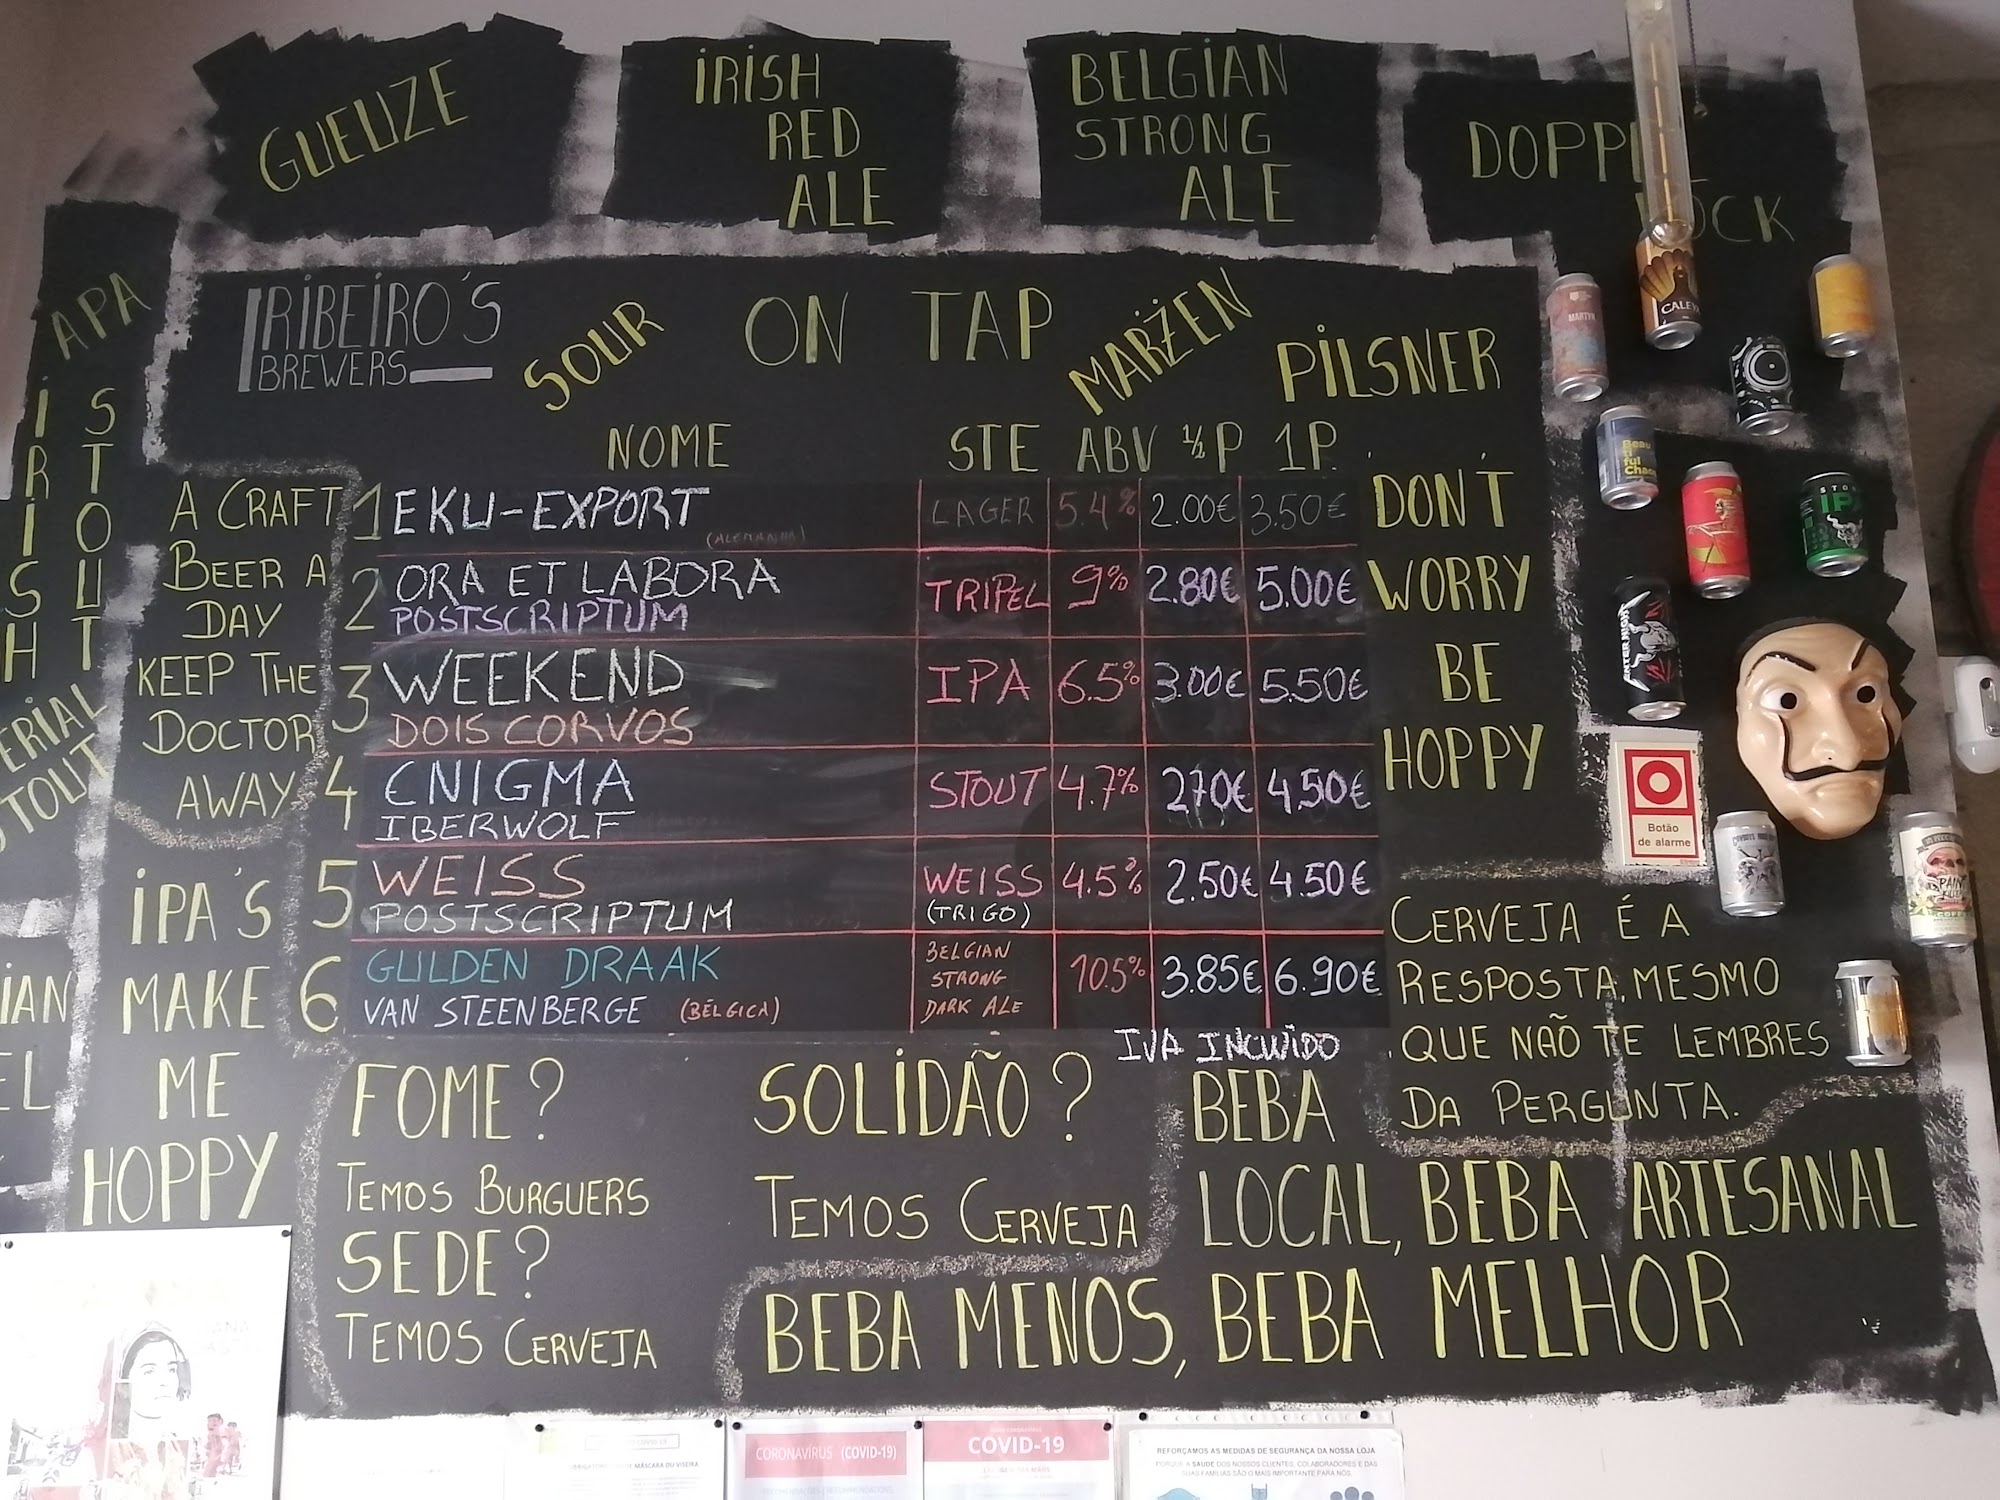 GUEUZE
IRISH
RED
ALE
BELGIAN
STRONG
ALE
APA
IRISH
STOUT
RIBEIRO'S
BREWERS
SOUR
ON TAP
MARŻEN
PILSNER
NOME STE ABV ½P 1P.
1 EKU-EXPORT (ALEMANHA) LAGER 5.4% 2.00€ 3.50€
2 ORA ET LABORA TRIPEL 9% 2.80€ 5.00€
POSTSCRIPTUM
3 WEEKEND IPA 6.5% 3.00€ 5.50€
DOIS CORVOS
4 ENIGMA STOUT 4.7% 270€ 4.50€
IBERWOLF
5 WEISS WEISS 4.5% 2.50€ 4.50€
POSTSCRIPTUM (TRIGO)
6 GULDEN DRAAK BELGIAN STRONG DARK ALE 10.5% 3.85€ 6.90€
VAN STEENBERGE (BÉLGICA)
IVA INCLUÍDO
A CRAFT
BEER A
DAY
KEEP THE
DOCTOR
AWAY
IPA'S
MAKE
ME
HOPPY
DON'T
WORRY
BE
HOPPY
CERVEJA É A
RESPOSTA, MESMO
QUE NÃO TE LEMBRES
DA PERGUNTA.
FOME?
TEMOS BURGUERS
SEDE?
TEMOS CERVEJA
SOLIDÃO?
TEMOS CERVEJA
BEBA
LOCAL, BEBA ARTESANAL
BEBA MENOS, BEBA MELHOR
MARTYN
Beau
ti
ful
Chaos
STONE
IPA
Botão
de alarme
CORONAVÍRUS (COVID-19)
COVID-19
REFORÇAMOS AS MEDIDAS DE SEGURANÇA DA NOSSA LOJA
PORQUE A SAÚDE DOS NOSSOS CLIENTES, COLABORADORES E DAS
SUAS FAMÍLIAS SÃO O MAIS IMPORTANTE PARA NÓS